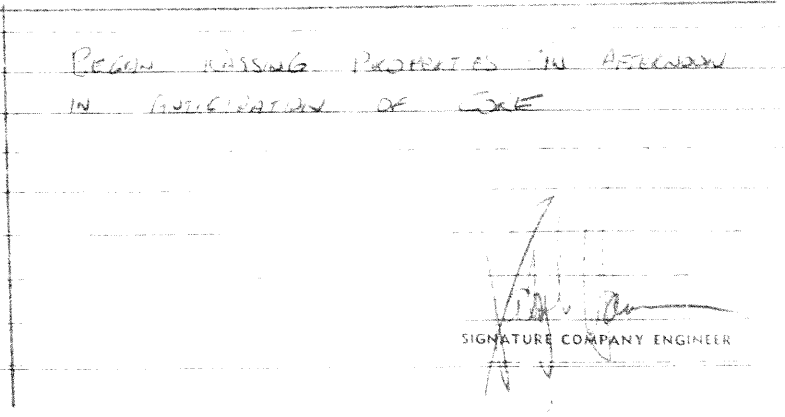 BEGAN RAISING PROPERTIES IN AFTERNOON
IN ANTICIPATION OF CORE
SIGNATURE COMPANY ENGINEER